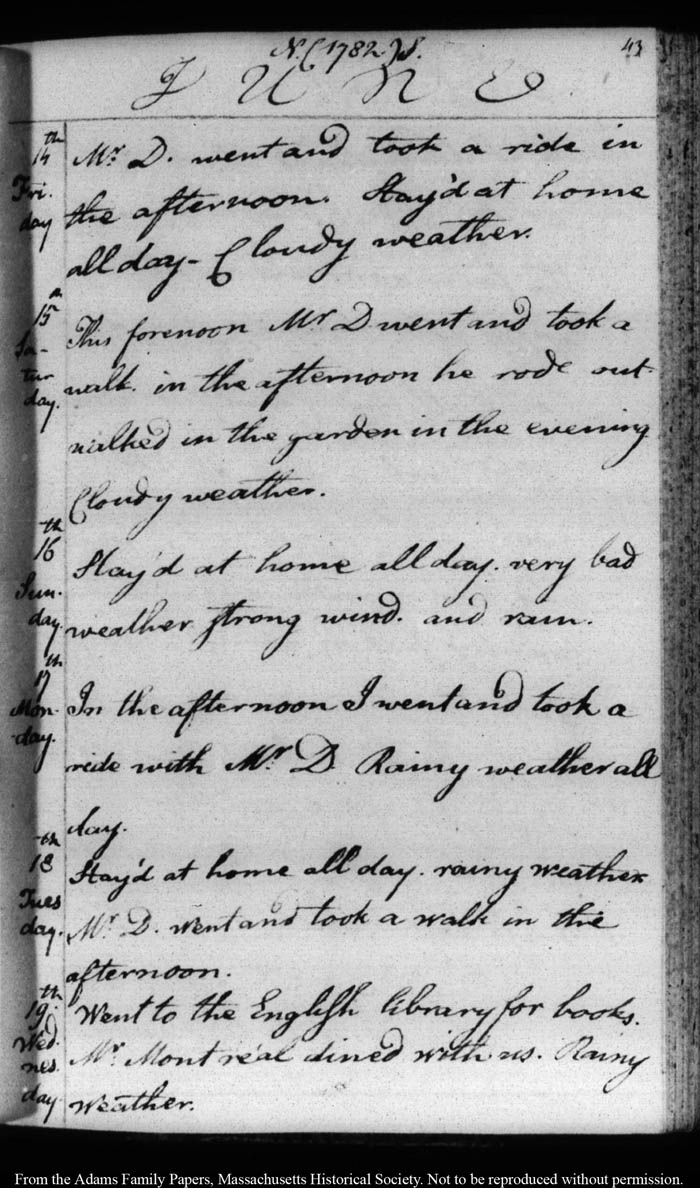 N.( 1782 )S.
43
J U N E
14th
Fri.
day
Mr. D. went and took a ride in
the afternoon. Stay'd at home
all day - Cloudy weather.
15
Sa-
tur
day.
This forenoon Mr D went and took a
walk. in the afternoon he rode out.
walked in the garden in the evening
Cloudy weather.
16th
Sun.
day.
Stay'd at home all day. very bad
weather strong wind. and rain.
17th
Mon-
day.
In the afternoon I went and took a
ride with Mr D. Rainy weather all
day.
18th
Tues
day.
Stay'd at home all day. rainy weather
Mr. D. went and took a walk in the
afternoon.
19th
Wed.
nes.
day
Went to the English library for books.
Mr. Montréal dined with us. Rainy
weather.
From the Adams Family Papers, Massachusetts Historical Society. Not to be reproduced without permission.